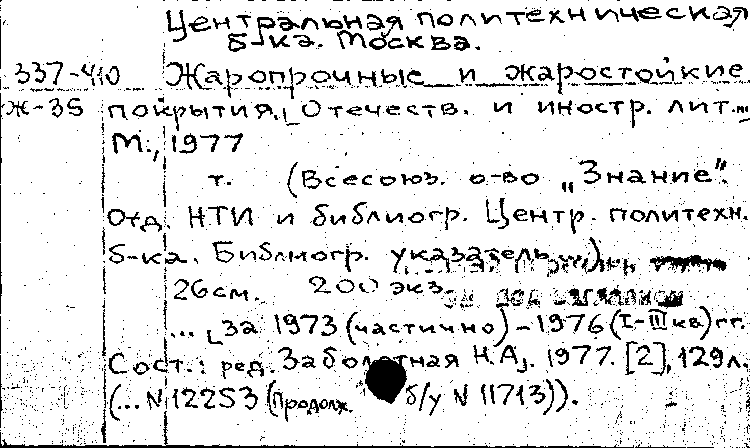 Центральная политехническая
б-ка. Москва.
337-410 Жаропрочные и жаростойкие
Ж-35 покрытия. [Отечеств. и иностр. лит...
М., 1977
т. (Всесоюз. о-во „Знание".
Отд. НТИ и библиогр. Центр. политехн.
б-ка. Библиогр. указатель...)
26см. 200 экз.
... [за 1973 (частично) – 1976 (I-III кв) гг.
Сост.: ред. Заболотная Н.А]. 1977. [2], 129л.
(... N 12253 (Продолж. б/у N 11713)).